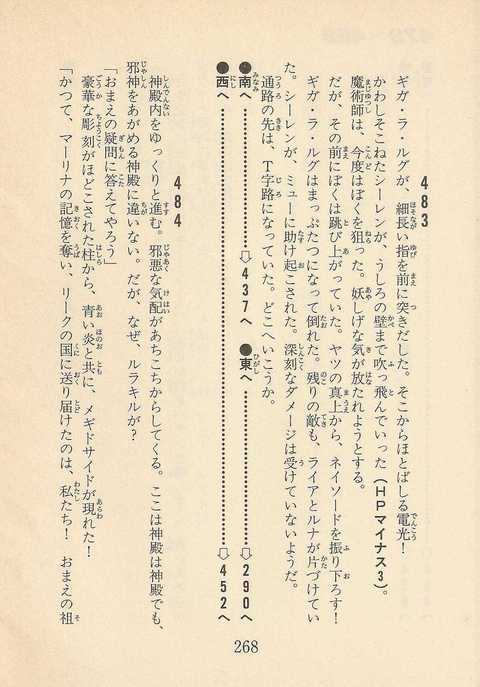 483
ギガ・ラ・ルグが、細長い指を前に突きだした。そこからほとばしる電光！
かわしそこねたシーレンが、うしろの壁まで吹っ飛んでいった（HPマイナス3）。
魔術師は、今度はぼくを狙った。妖しげな気が放たれようとする。
だが、その前にぼくは跳び上がっていた。ヤツの真上から、ネイソードを振り下ろす！
ギガ・ラ・ルグはまっぷたつになって倒れた。残りの敵も、ライアとルナが片づけてい
た。シーレンが、ミューに助け起こされた。深刻なダメージは受けていないようだ。
通路の先は、T字路になっていた。どこへいこうか。
●南へ……………⇨437へ ●東へ……………⇨290へ
●西へ……………⇨452へ
484
神殿内をゆっくりと進む。邪悪な気配があちこちからしてくる。ここは神殿は神殿でも、
邪神をあがめる神殿に違いない。だが、なぜ、ルラキルが？
「おまえの疑問に答えてやろう」
豪華な彫刻がほどこされた柱から、青い炎と共に、メギドサイドが現れた！
「かつて、マーリナの記憶を奪い、リークの国に送り届けたのは、私たち！　おまえの祖
268